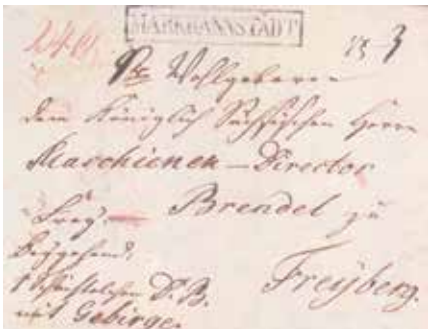 MARKRANNSTÄDT
Wohlgeboren
dem Königlich Sächsischen Herrn
Maschienen-Director
Brendel zu
Freyberg.
D. B.
mit Gebirge.